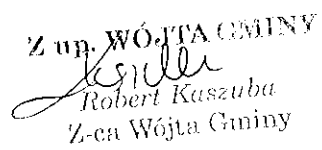 Z up. WÓJTA GMINY
Robert Kaszuba
Z-ca Wójta Gminy